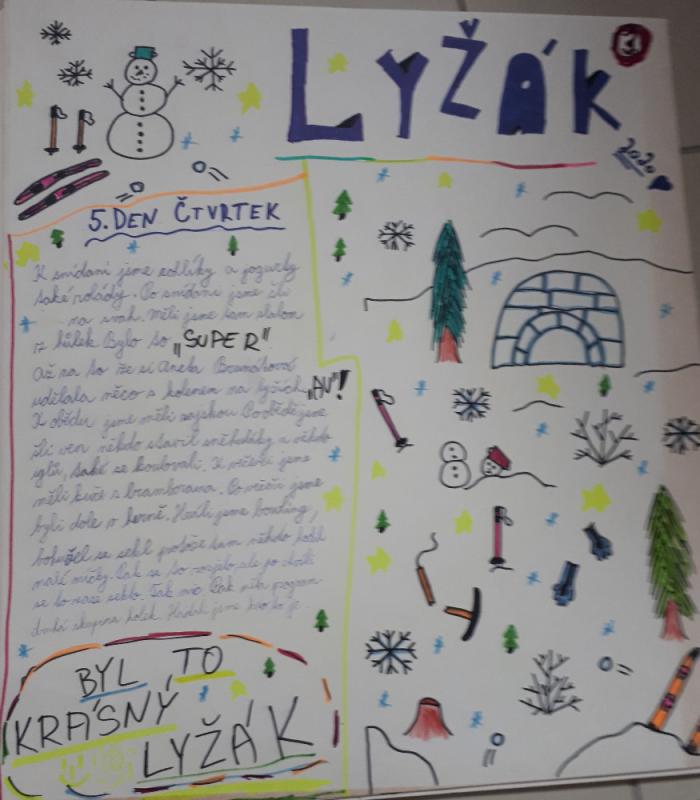 LYŽÁK
2020
5. DEN ČTVRTEK
K snídani jsme rohlíky a jogurty
také rolády. Po snídani jsme šli
na svah. Měli jsme tam slalom
z hůlek Bylo to „SUPER"
Až na to že si Aneta
udělala něco s kolenem na lyžích „AU"!
K obědu jsme měli Po obědě jsme
šli ven někdo stavil sněhuláky a někdo
iglů, také se koulovali. K večeři jsme
měli kuře s bramborama. Po večeři jsme
byli dole v herně. Hráli jsme bowling,
bohužel se sekl protože tam někdo hodil
malí míčky. Pak se to rozjelo ale po chvíli
se to zase seklo. Tak nic. Pak měla program
druhá skupina holek. Hádali jsme kdo to je.
BYL TO
KRÁSNÝ
LYŽÁK